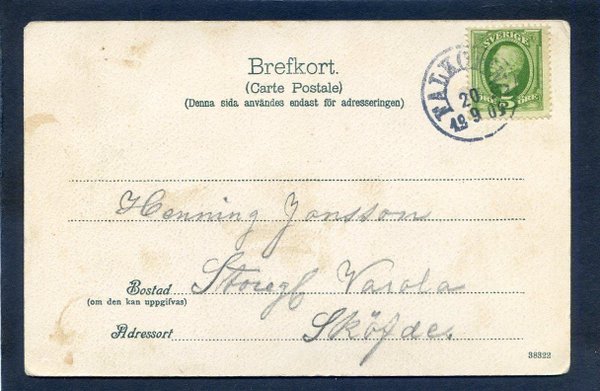 Brefkort.
(Carte Postale)
(Denna sida användes endast för adresseringen)
SVERIGE
5 ÖRE
20
12 9 03
Henning Jonsson
Bostad Storegf Varola
(om den kan uppgifvas)
Adressort Sköfde
38322